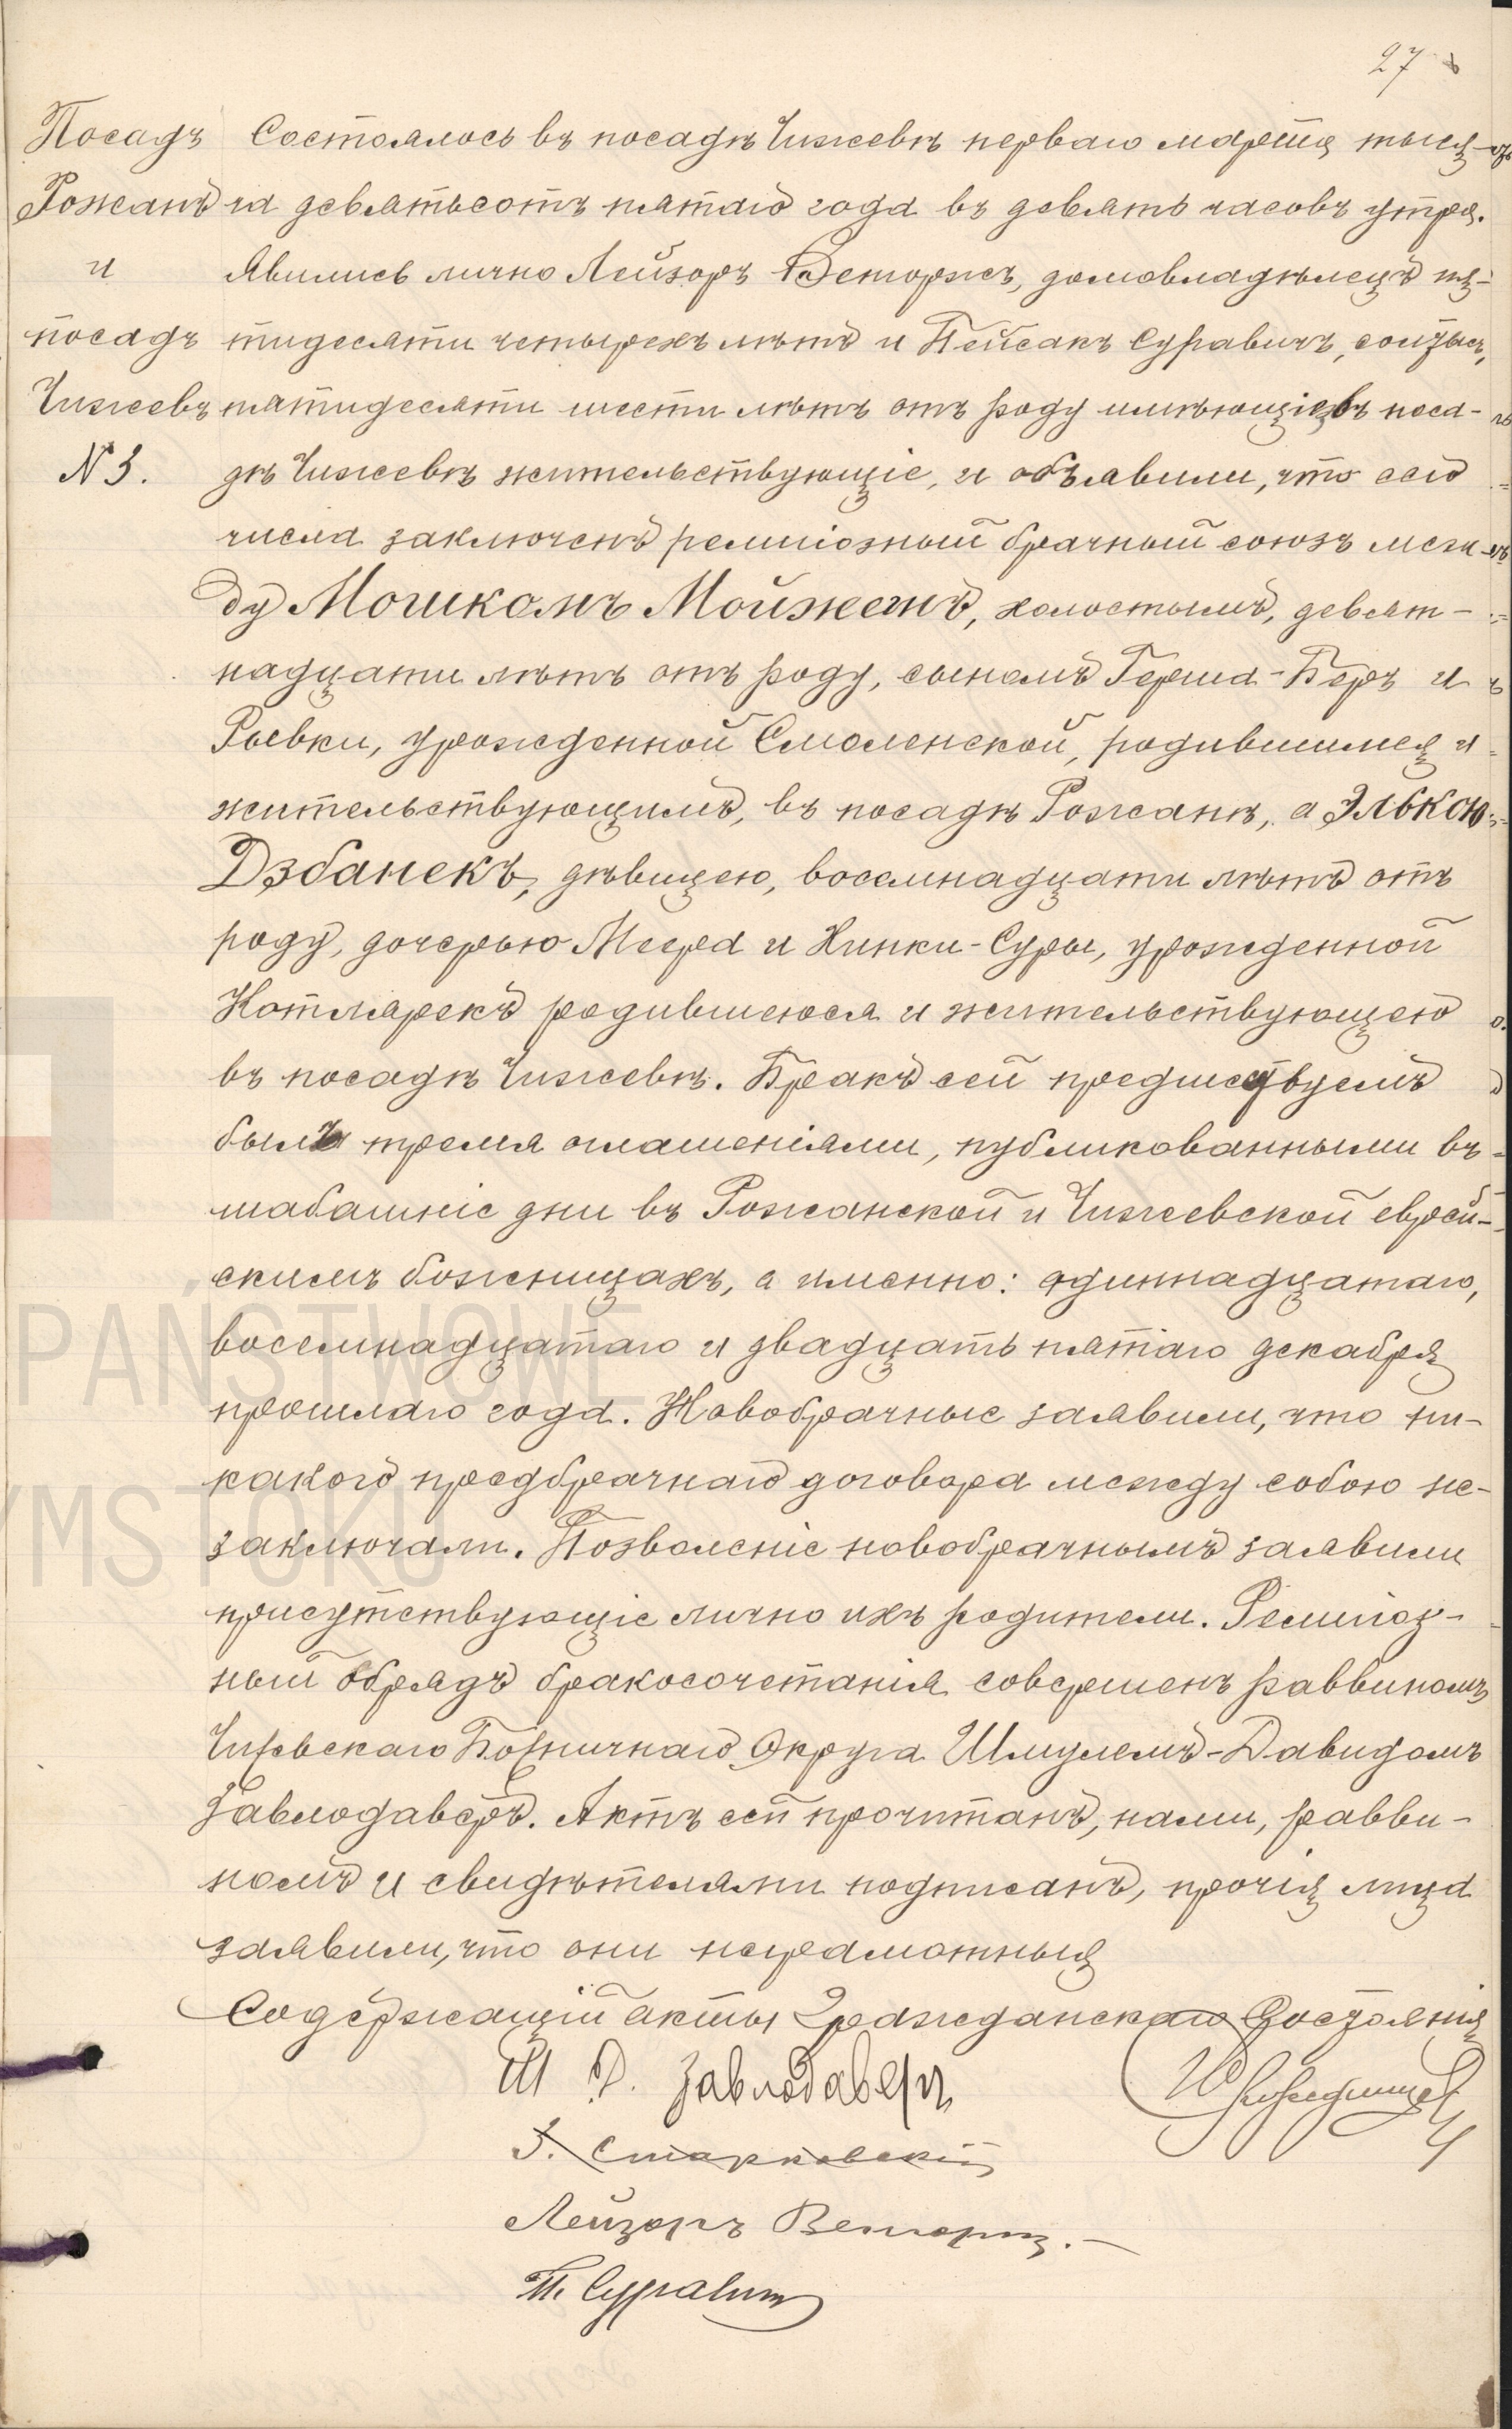 27
Посадъ
Рожанъ
и
посадъ
Чижевъ
N 3.
Состоялось въ посадѣ Чижевѣ перваго марта тыся-
ча девятьсотъ пятаго года въ девять часовъ утра.
Явились лично Лейзоръ Венгоржъ, домовладѣлецъ пя-
тидесяти четырехъ лѣтъ и Пейсакъ Суравичъ,
пятидесяти шести лѣтъ отъ роду имѣющіе, въ поса-
дѣ Чижевѣ жительствующіе, и объявили, что сего
числа заключенъ религіозный брачный союзъ меж-
ду Мошкомъ Мойжешъ, холостымъ, девят-
надцати лѣтъ отъ роду, сыномъ Герша-Беръ и
Рывки, урожденной Смоленской, родившимся и
жительствующимъ, въ посадѣ Рожанѣ, а Элькою
Дзбанекъ, дѣвицею, восемнадцати лѣтъ отъ
роду, дочерью Меера и Хинки-Суры, урожденной
Котлярекъ родившеюся и жительствующею
въ посадѣ Чижевѣ. Бракъ сей предшествуемъ
былъ тремя оглашеніями, публикованными въ
шабашніе дни въ Рожанской и Чижевской еврей-
скимъ божницахъ, а именно: одиннадцатаго,
восемнадцатаго и двадцать пятаго декабря
прошлаго года. Новобрачные заявили, что ни-
какого предбрачнаго договора между собою не-
заключали. Позволеніе новобрачнымъ заявили
присутствующіе лично ихъ родители. Религіоз-
ный обрядъ бракосочетанія совершенъ раввиномъ
Чижевскаго Божничнаго Округа Шмулемъ-Давидомъ
Завлодаверъ. Актъ сей прочитанъ, нами, равви-
номъ и свидѣтелями подписанъ, прочія лица
заявили, что они неграмотныя
Содержащій акты Гражданскаго Состоянія
Ш Д. Завлодаверъ
Лейзоръ Венгоржъ.
П. Суравич
PAŃSTWOWE
YMSTOKU